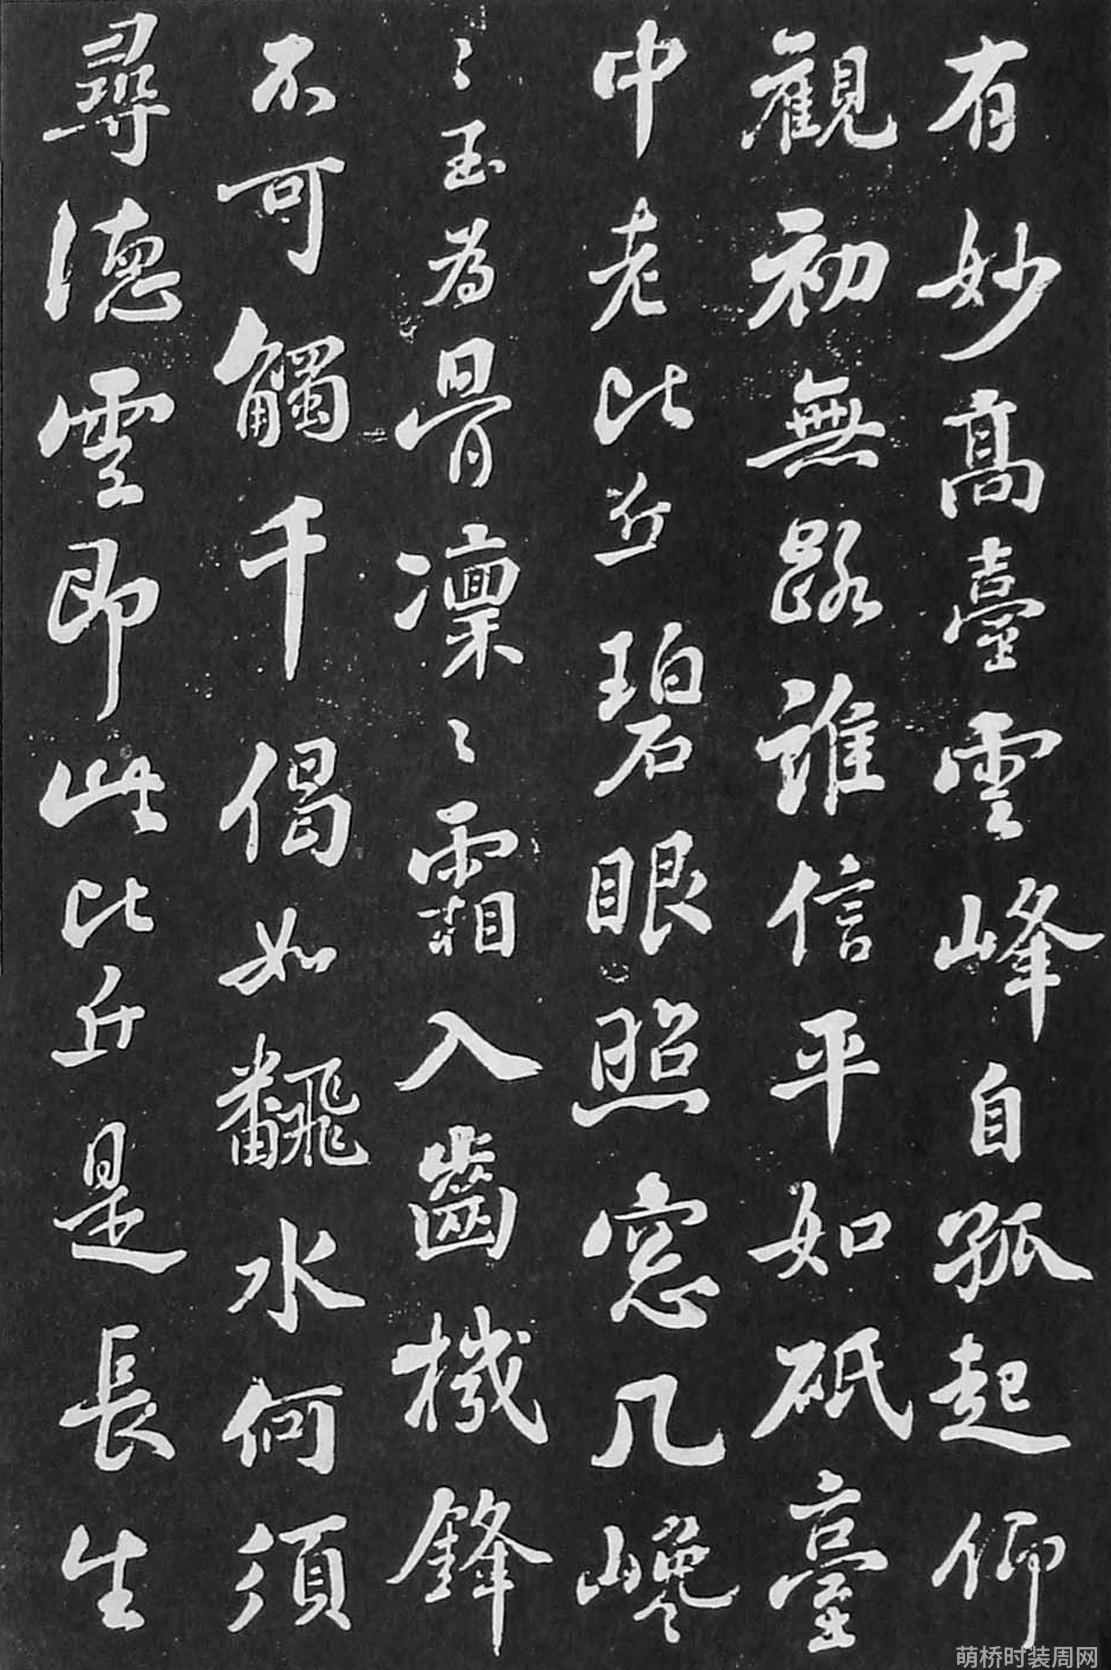 有妙髙臺雲峰自孤起仰
觀初無路誰信平如砥臺
中老比丘碧眼照窓几巉
〻玉為骨凜〻霜入齒機鋒
不可觸千偈如飜水何須
尋德雲即此比丘是長生
萌桥时装周网